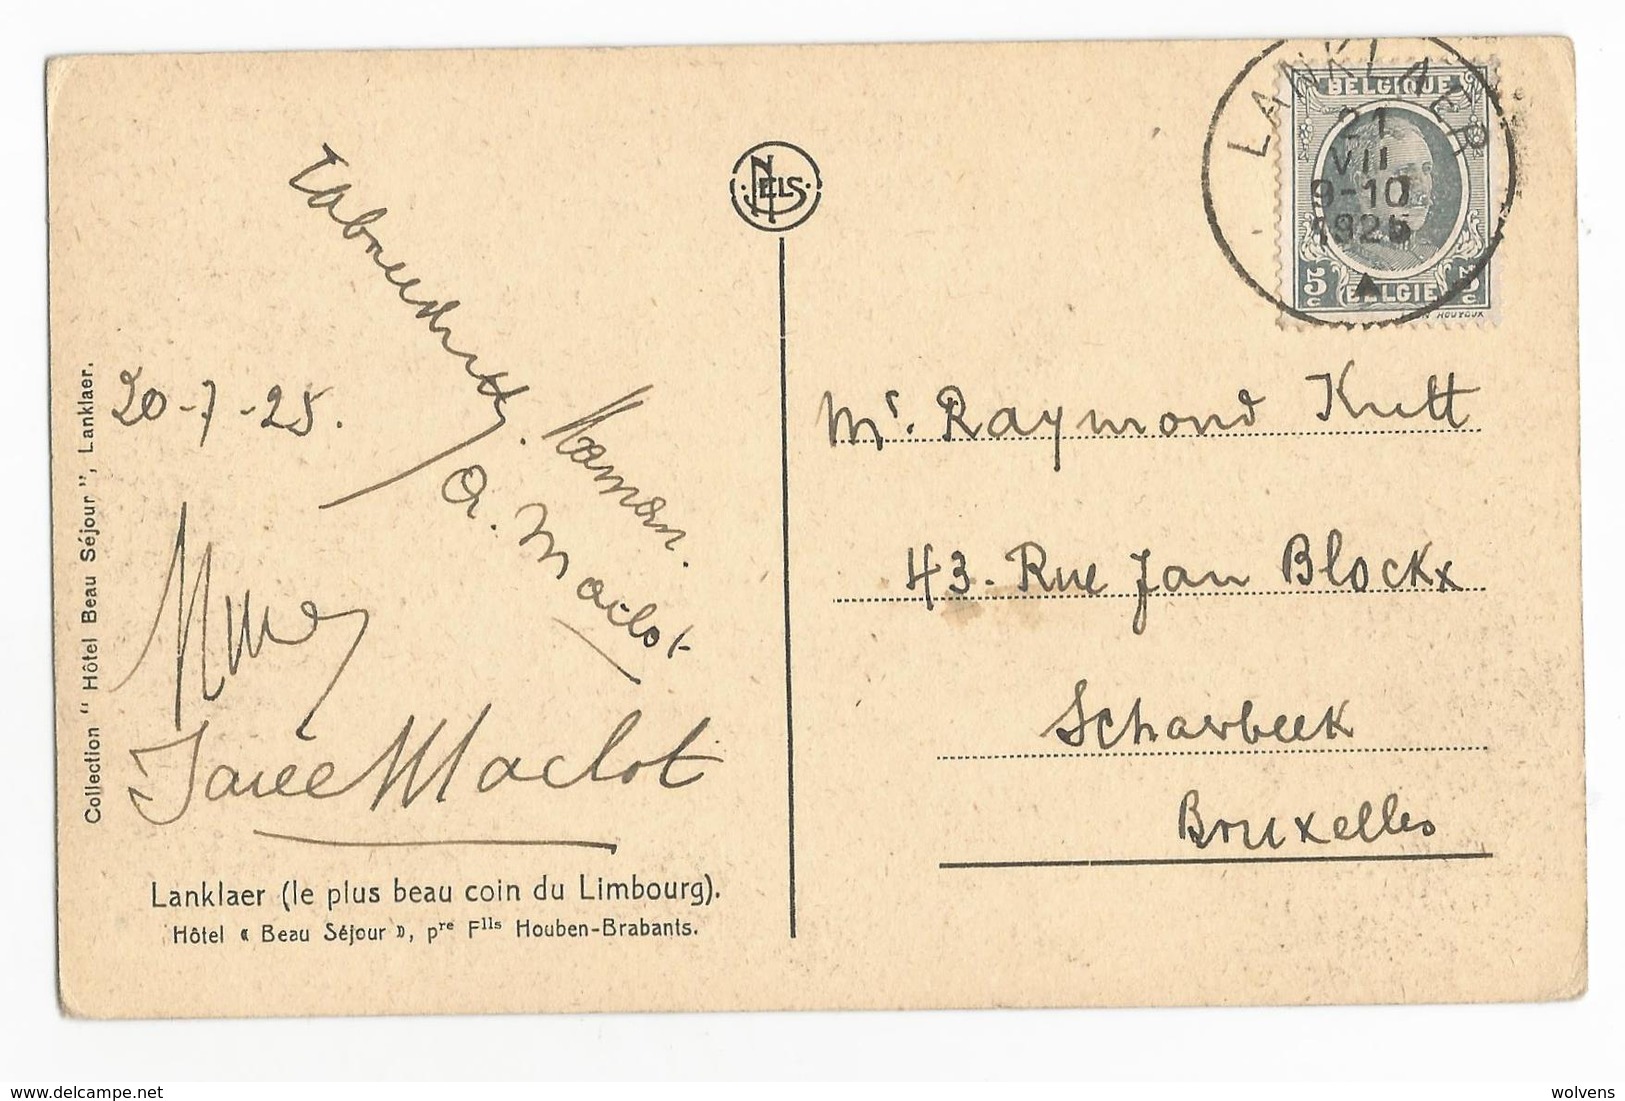 LANKLAER
BELGIQUE
21
VII
9-10
1925
5c
5c
BELGIE
HOUYOUX
NELS
20-7-25.
Maman.
A. Maclot
Maclot
Mr. Raymond Kutt
43. Rue Jan Blockx
Scharbeek
Bruxelles
Collection “ Hôtel Beau Séjour ”, Lanklaer.
Lanklaer (le plus beau coin du Limbourg).
Hôtel « Beau Séjour », pre Flls Houben-Brabants.
delcampe.net
wolvens